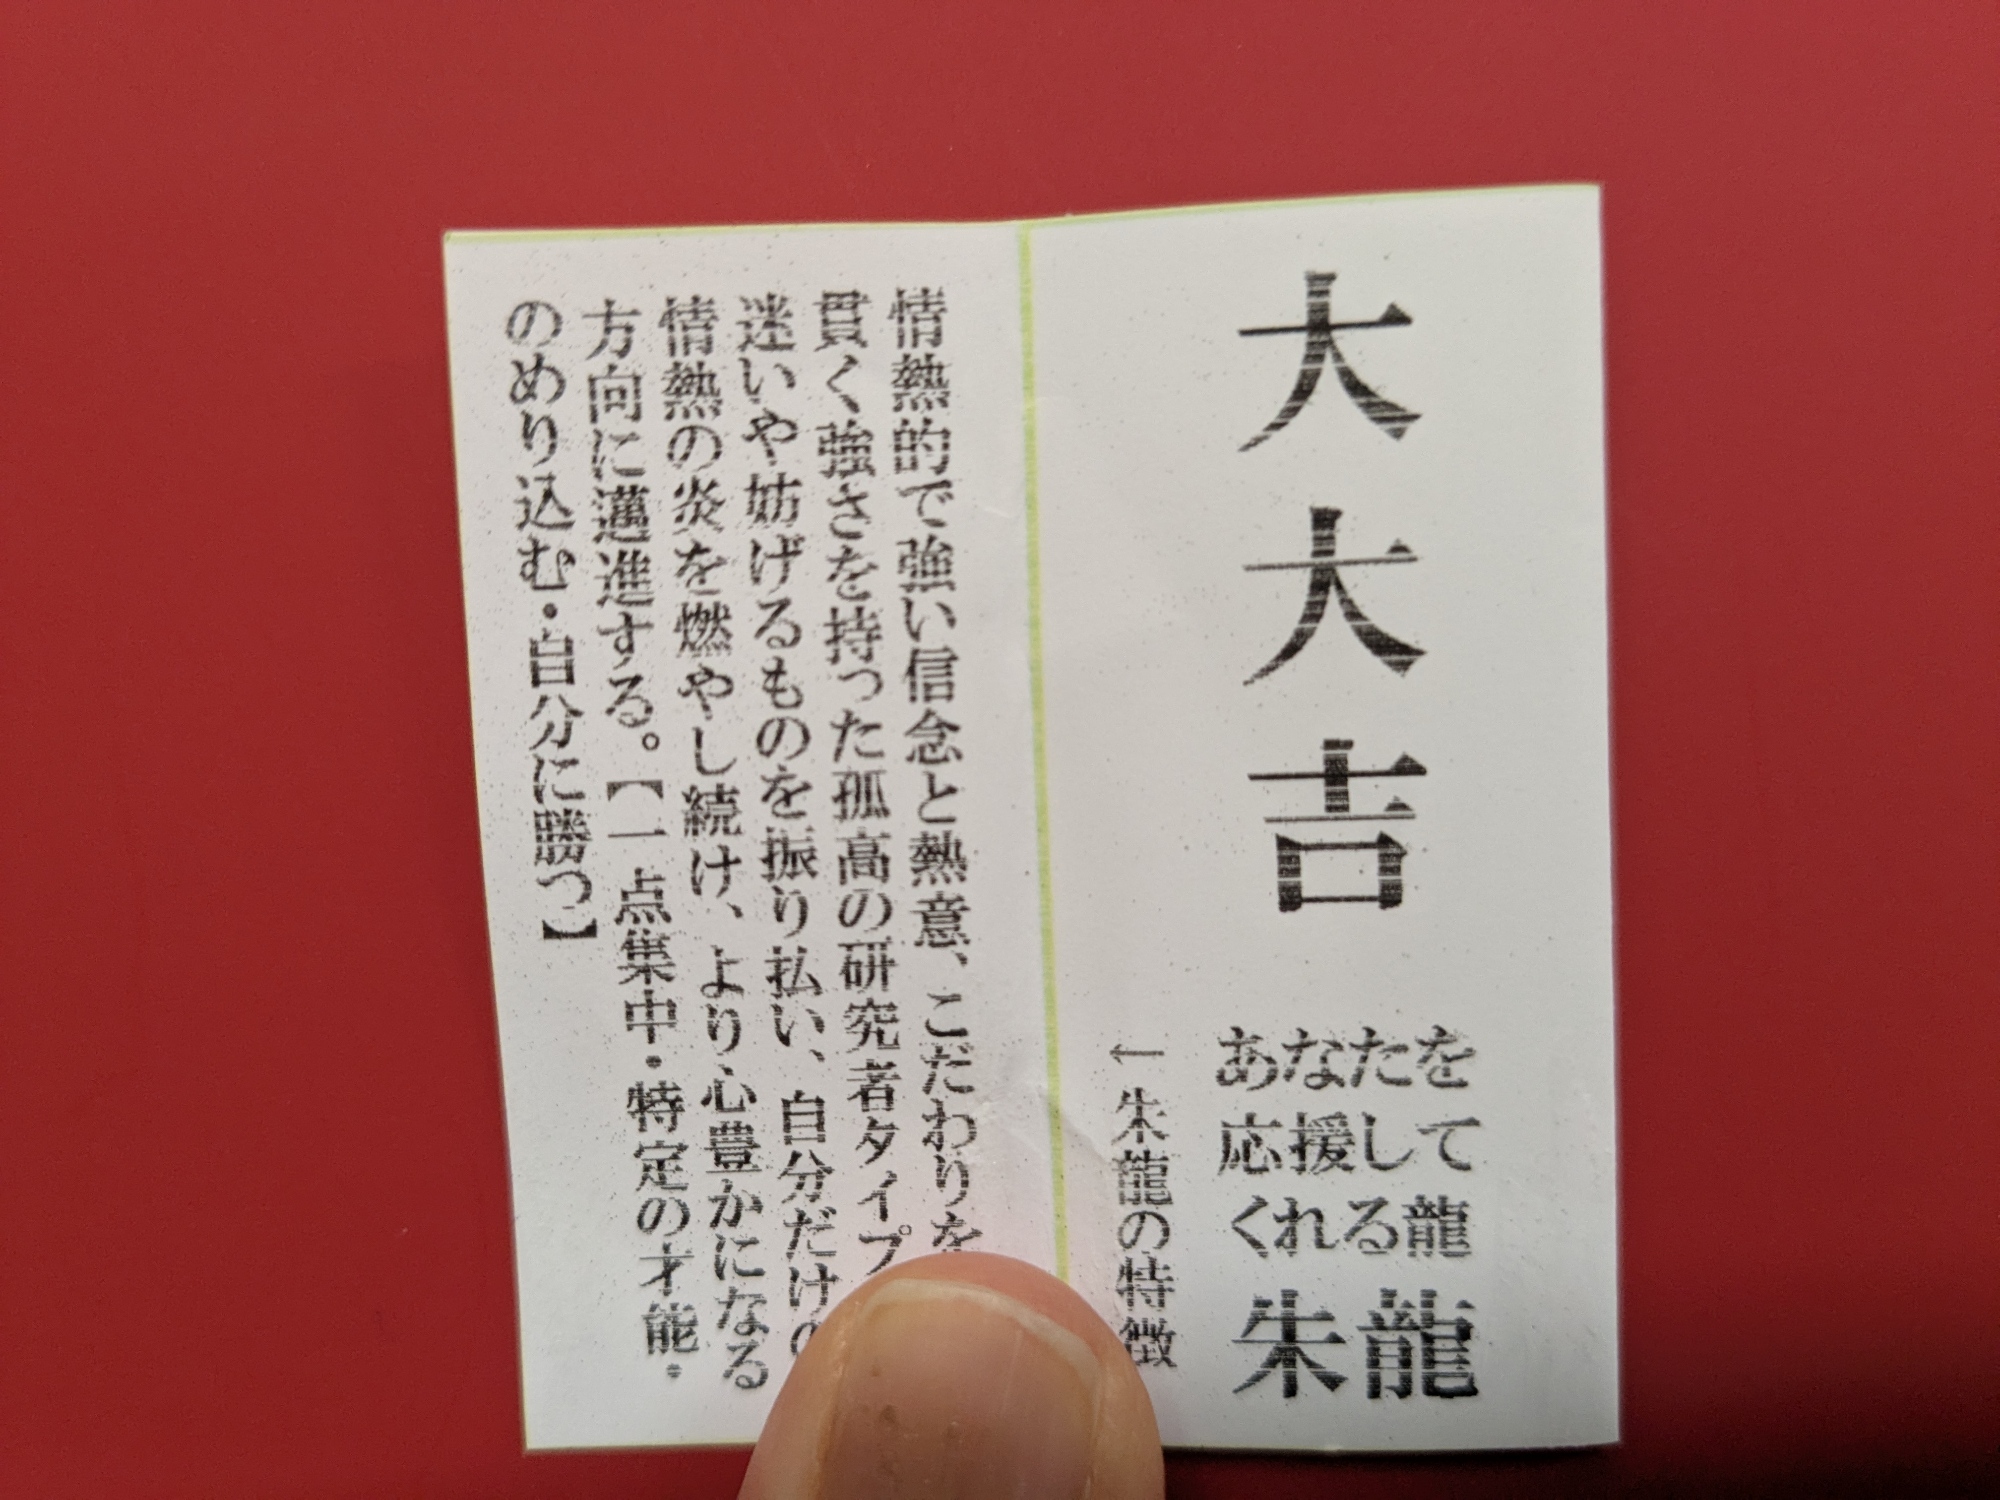 大大吉
あなたを
応援して
くれる龍
朱龍
←朱龍の特徴
情熱的で強い信念と熱意、こだわりを
貫く強さを持った孤高の研究者タイプ
迷いや妨げるものを振り払い、自分だけの
情熱の炎を燃やし続け、より心豊かになる
方向に邁進する。【一点集中・特定の才能・
のめり込む・自分に勝つ】